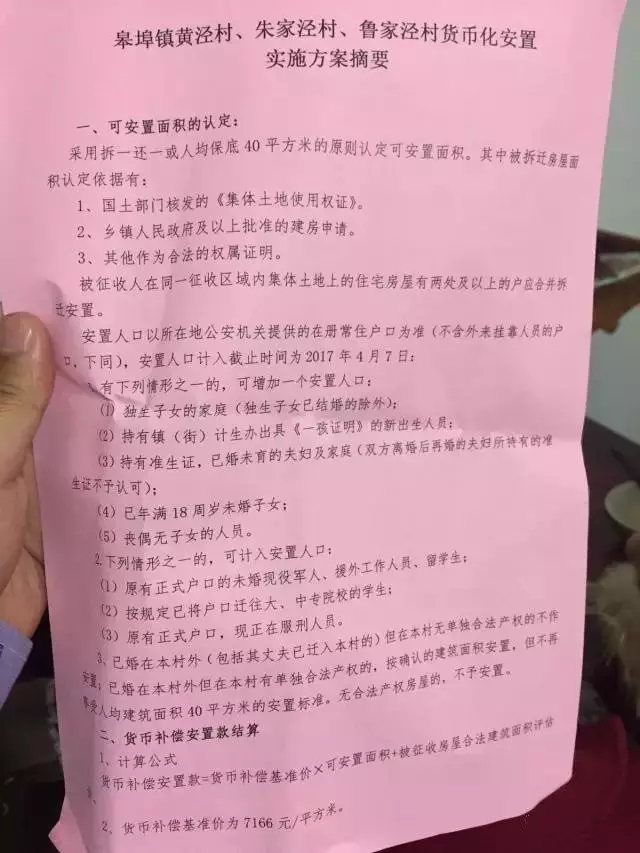 皋埠镇黄泾村、朱家泾村、鲁家泾村货币化安置
实施方案摘要
一、可安置面积的认定：
采用拆一还一或人均保底 40 平方米的原则认定可安置面积。其中被拆迁房屋面
积认定依据有：
1、国土部门核发的《集体土地使用权证》。
2、乡镇人民政府及以上批准的建房申请。
3、其他作为合法的权属证明。
被征收人在同一征收区域内集体土地上的住宅房屋有两处及以上的户应合并拆
迁安置。
安置人口以所在地公安机关提供的在册常住户口为准（不含外来挂靠人员的户
口，下同），安置人口计入截止时间为 2017 年 4 月 7 日：
有下列情形之一的，可增加一个安置人口：
(1) 独生子女的家庭（独生子女已结婚的除外）；
(2) 持有镇（街）计生办出具《一孩证明》的新出生人员；
(3) 持有准生证，已婚未育的夫妇及家庭（双方离婚后再婚的夫妇所持有的准
生证不予认可）；
(4) 已年满 18 周岁未婚子女；
(5) 丧偶无子女的人员。
2、下列情形之一的，可计入安置人口：
(1) 原有正式户口的未婚现役军人、援外工作人员、留学生；
(2) 按规定已将户口迁往大、中专院校的学生；
(3) 原有正式户口，现正在服刑人员。
3、已婚在本村外（包括其丈夫已迁入本村的）但在本村无单独合法产权的不作
安置；已婚在本村外但在本村有单独合法产权的，按确认的建筑面积安置，但不再
享受人均建筑面积 40 平方米的安置标准。无合法产权房屋的，不予安置。
二、货币补偿安置款结算
1、计算公式
货币补偿安置款=货币补偿基准价×可安置面积+被征收房屋合法建筑面积评估
2、货币补偿基准价为 7166 元/平方米。